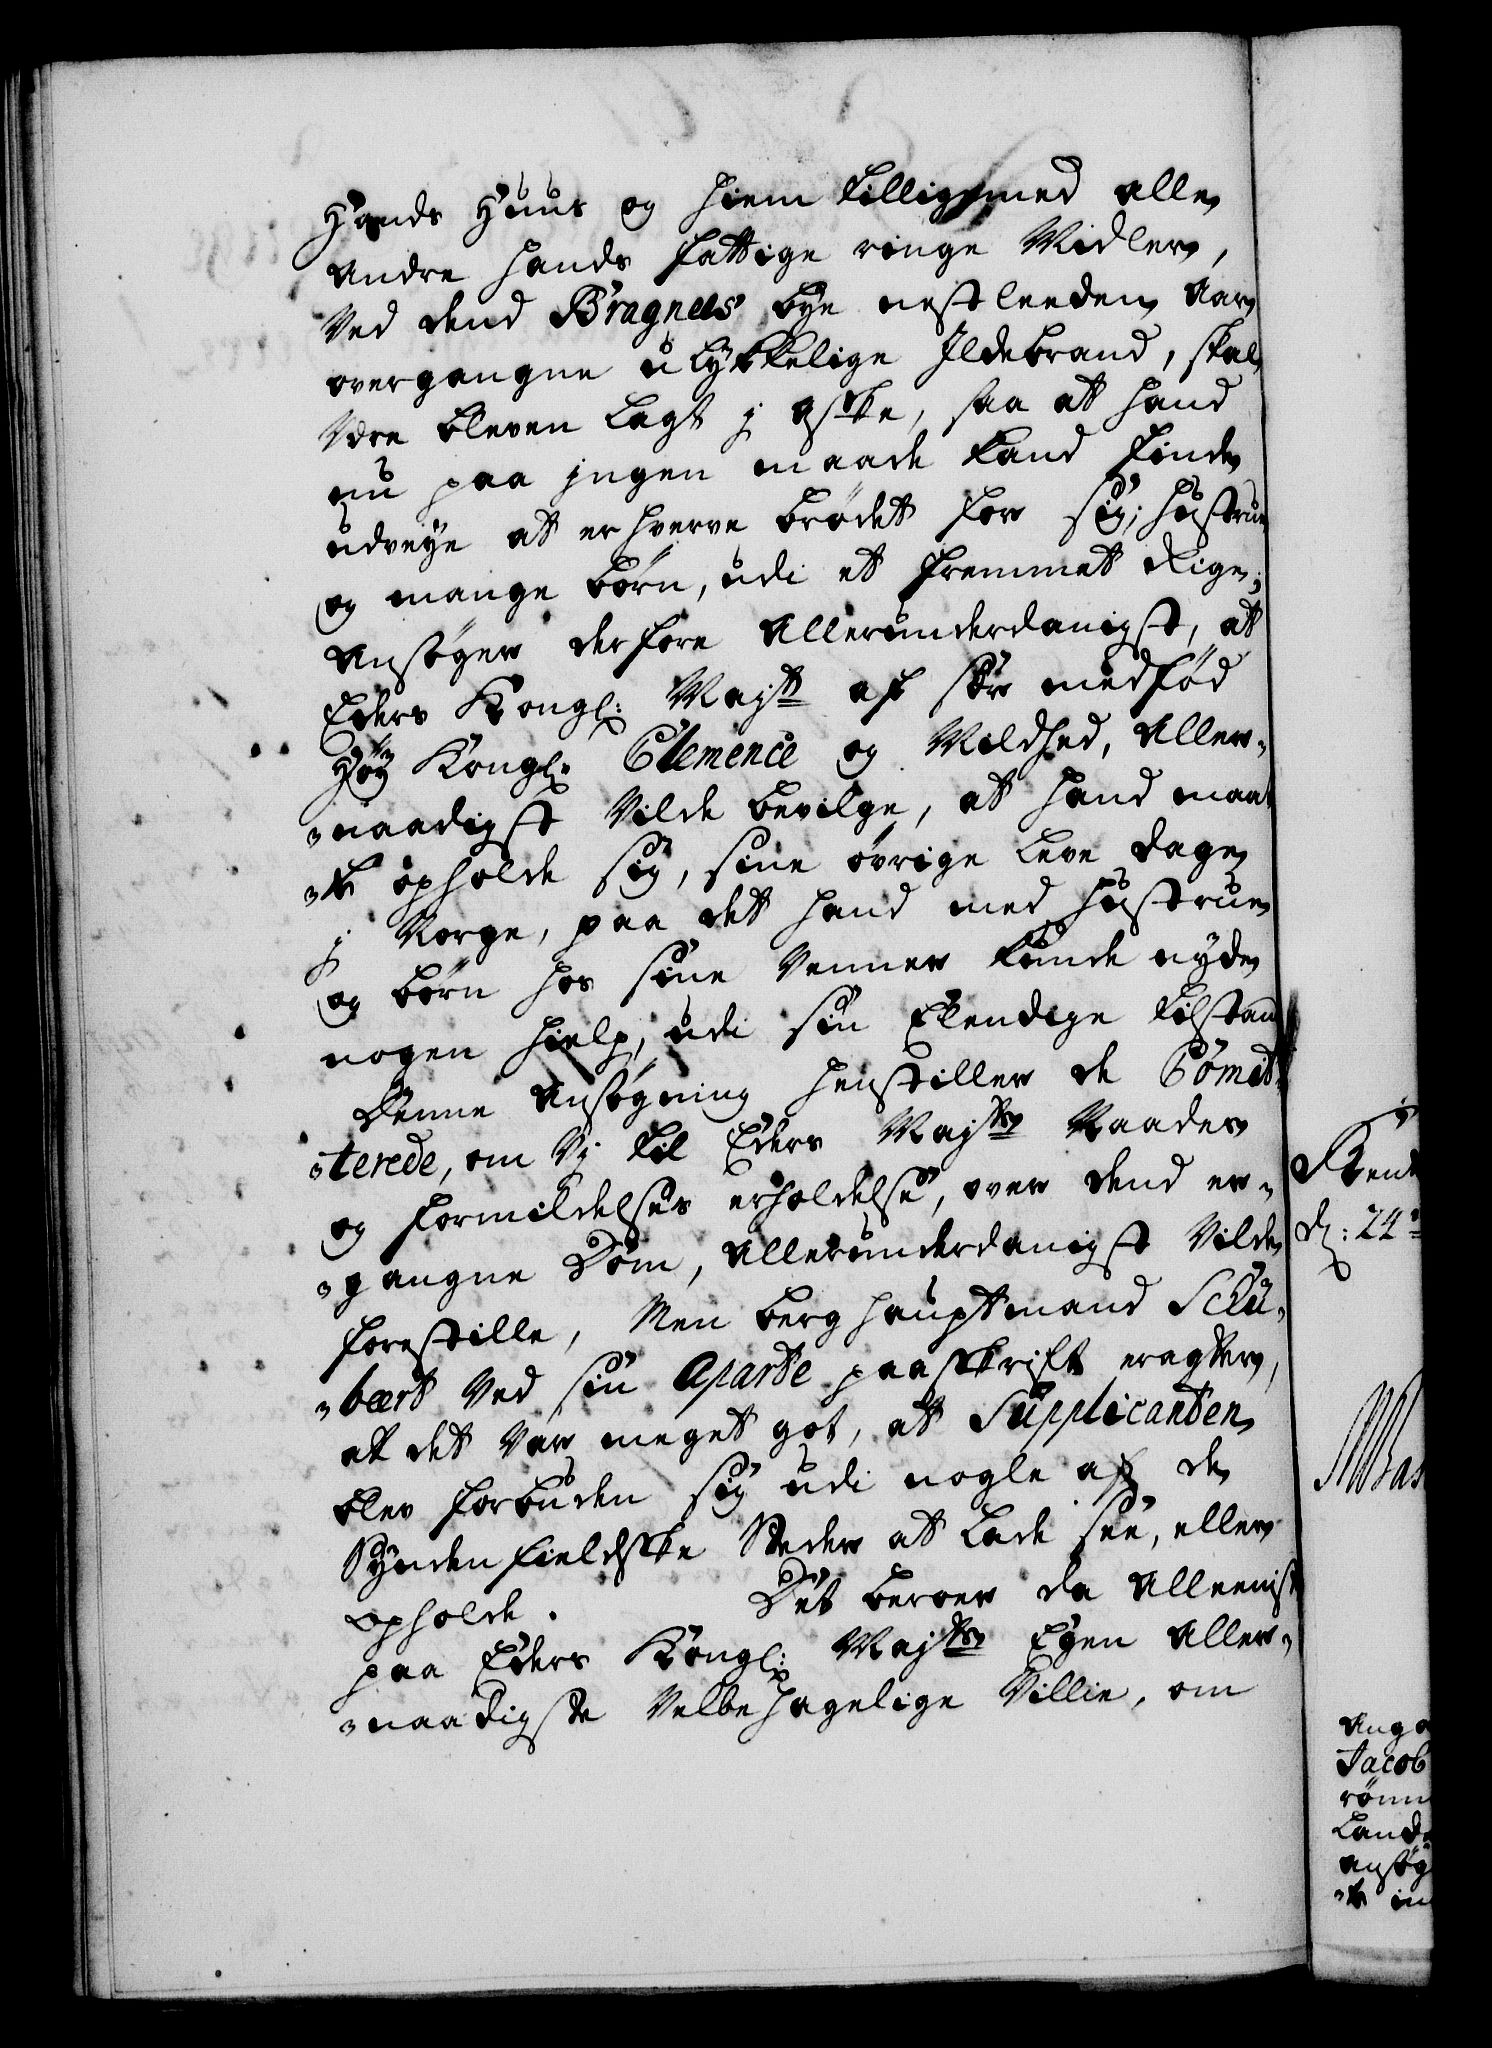 Hands Huus og Hiem tilligemed alle
andre hands fattige ringe Midler,
ved dend Bragnæs bye nestleeden Aar
overgangne ulykkelige Ildebrand, skal
være bleven lagt j aske, saa at hand
nu paa jngen maade kand finde
udveye at erhverve brødet for sig, hustrue
og mange børn, udi et fremmet Rige;
Ansøger derfore allerunderdanigst, at
Eders Kongl: Mayst af sær medfød
Høy Kongl: Clemence og Mildhed, aller-
-naadigst vilde bevilge, at hand maat
-te opholde sig, sine øvrige leve dage
j Norge, paa det hand med hustrue
og børn hos sine venner kunde nyde
nogen hielp, udi sin Elendige tilstand
Denne ansøgning henstiller de Comit-
-terede, om vj til Eders Maysts Naades
og formildelses erholdelse, over dend er-
-gangne Dom, allerunderdanigst vilde
forestille, Men berghauptmand Schu-
-bært ved sin aparte paaskrift eragter,
at det var meget got, at Supplicanten
blev forbuden sig udi nogle af de
Syndenfieldske Steder at lade see, eller
opholde. Det beroer da alleenist
paa Eders Kongl: Maysts Egen aller-
-naadigste velbehagelige Villie, om
Rent
d: 24
Jacob